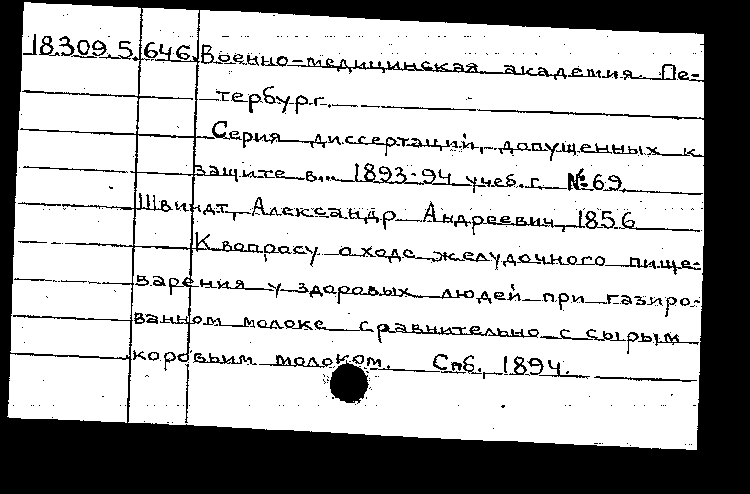 18.309.5.646. Военно-медицинская академия. Пе-
тербург.
Серия диссертаций, допущенных к
защите в... 1893-94 учеб. г. №69.
Швиндт, Александр Андреевич, 1856
К вопросу о ходе желудочного пище-
варения у здоровых людей при газиро-
ванном молоке сравнительно с сырым
коровьим молоком. Спб., 1894.